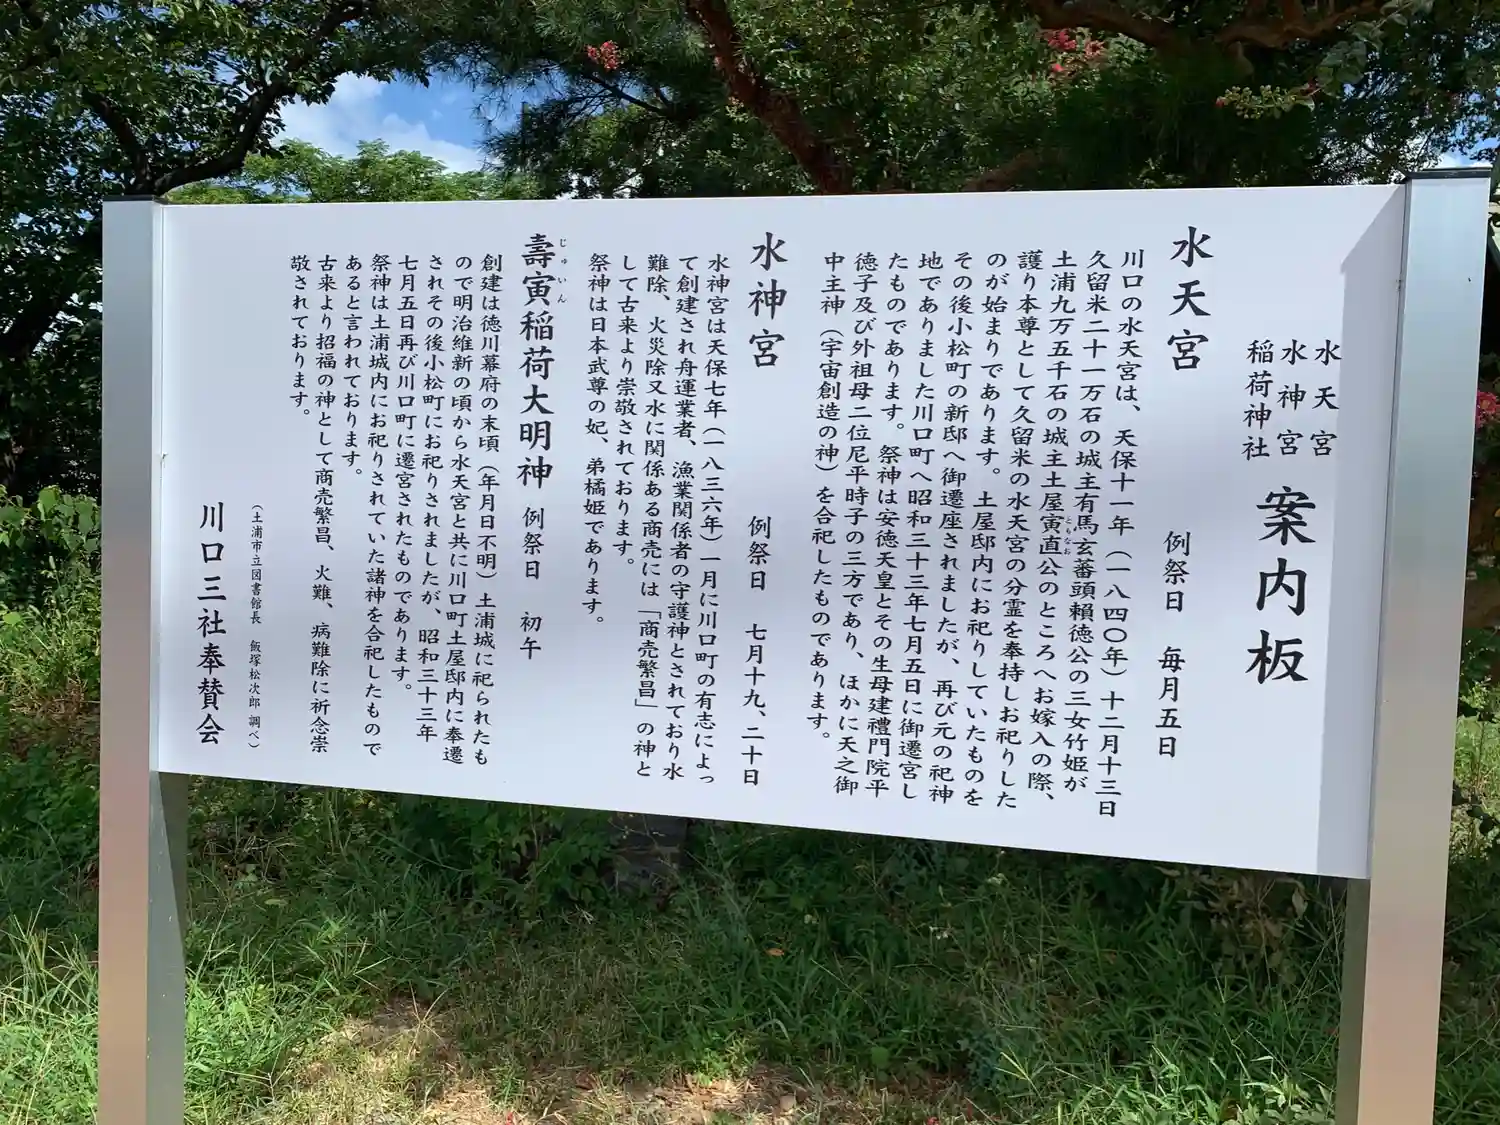 水天宮
水神宮
稲荷神社
案内板
水天宮　例祭日　毎月五日
川口の水天宮は、天保十一年（一八四〇年）十二月十三日
久留米二十一万石の城主有馬玄蕃頭頼徳公の三女竹姫が
土浦九万五千石の城主土屋寅直公のところへお嫁入の際、
ともなお
護り本尊として久留米の水天宮の分霊を奉持しお祀りした
のが始まりであります。土屋邸内にお祀りしていたものを
その後小松町の新邸へ御遷座されましたが、再び元の祀神
地でありました川口町へ昭和三十三年七月五日に御遷宮し
たものであります。祭神は安徳天皇とその生母建禮門院平
徳子及び外祖母二位尼平時子の三方であり、ほかに天之御
中主神（宇宙創造の神）を合祀したものであります。
水神宮　例祭日　七月十九、二十日
水神宮は天保七年（一八三六年）一月に川口町の有志によっ
て創建され舟運業者、漁業関係者の守護神とされており水
難除、火災除又水に関係ある商売には「商売繁昌」の神と
して古来より崇敬されております。
祭神は日本武尊の妃、弟橘姫であります。
壽寅稲荷大明神　例祭日　初午
じゅいん
創建は徳川幕府の末頃（年月日不明）土浦城に祀られたも
ので明治維新の頃から水天宮と共に川口町土屋邸内に奉遷
されその後小松町にお祀りされましたが、昭和三十三年
七月五日再び川口町に遷宮されたものであります。
祭神は土浦城内にお祀りされていた諸神を合祀したもので
あると言われております。
古来より招福の神として商売繁昌、火難、病難除に祈念崇
敬されております。
（土浦市立図書館長　飯塚松次郎 調べ）
川口三社奉賛会